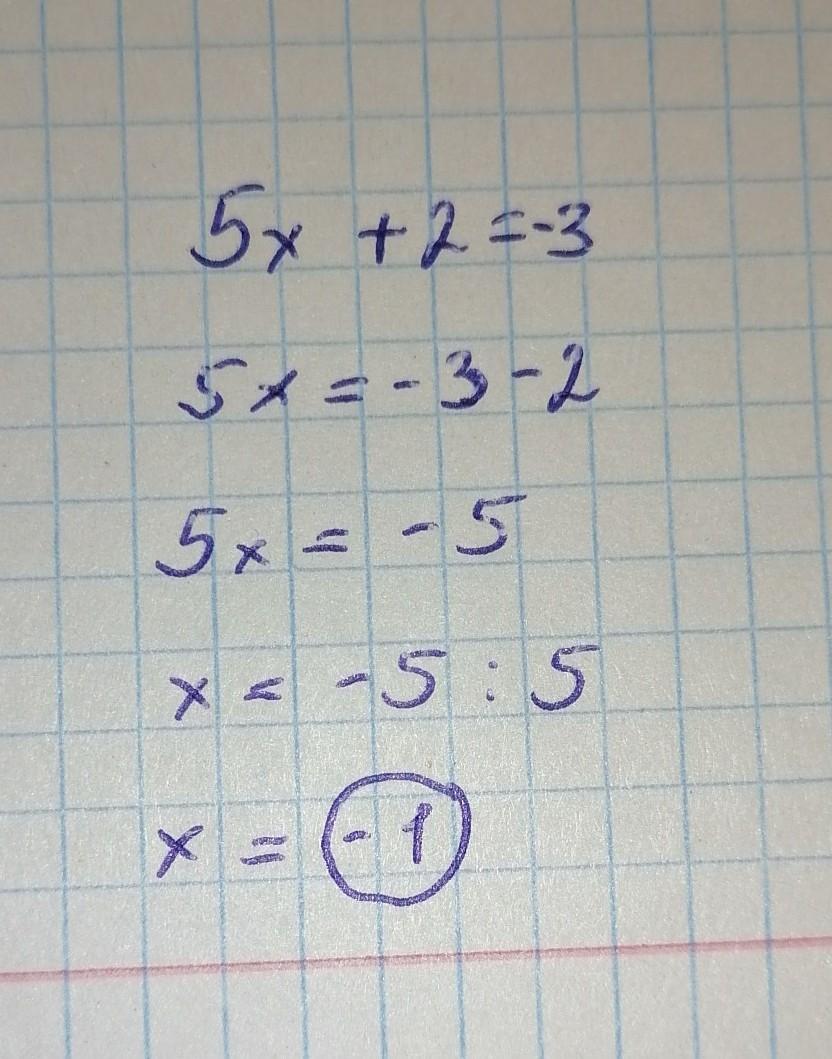 5x + 2 = -3
5x = - 3 - 2
5x = - 5
x = - 5 : 5
x = - 1